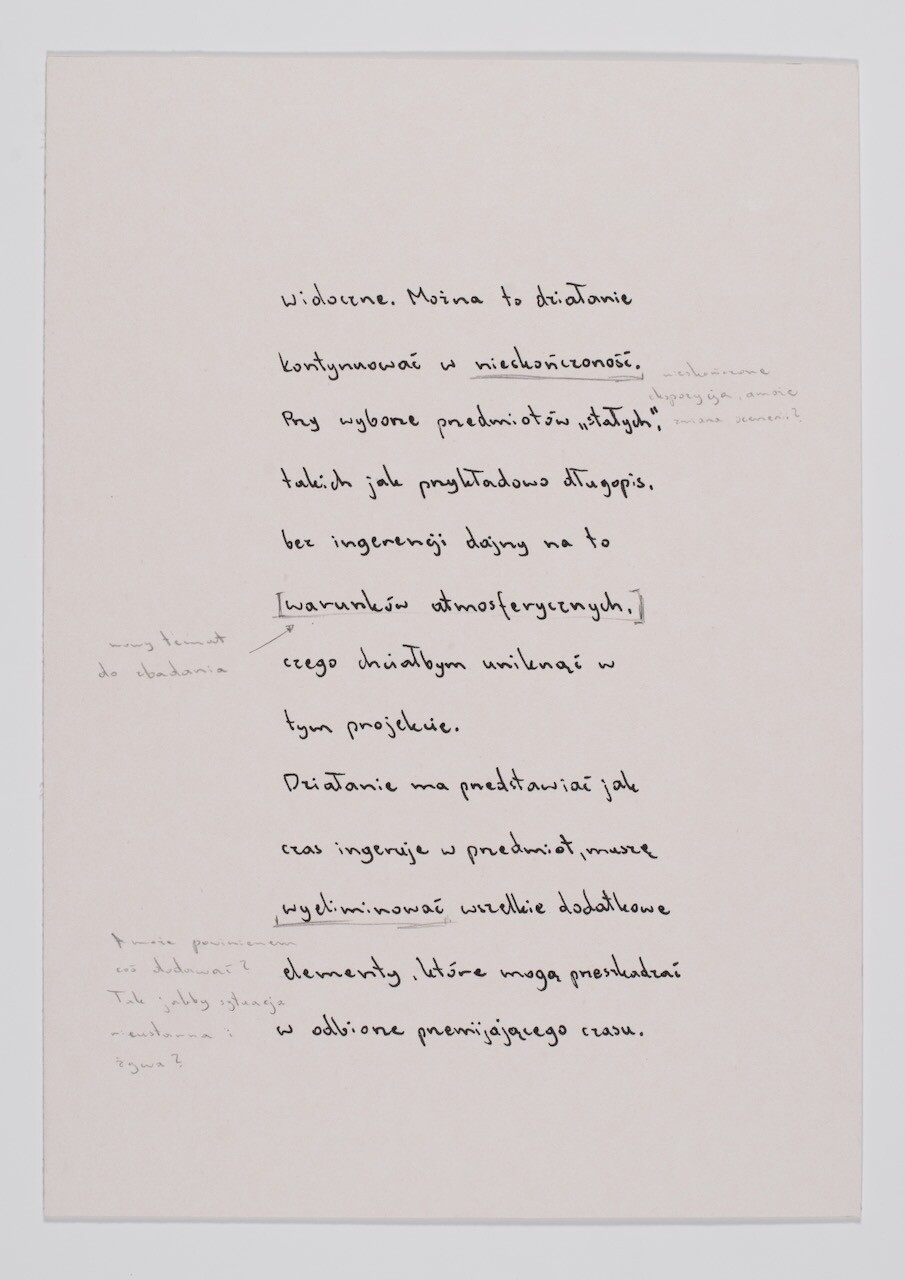 widoczne. Można to działanie
kontynuować w nieskończoność.
nieskończona
ekspozycja, a może
zmiana
Przy wyborze przedmiotów „stałych",
takich jak przykładowo długopis,
bez ingerencji dajny na to
[warunków atmosferycznych,]
nowy temat
do zbadania
czego chciałbym uniknąć w
tym projekcie.
Działanie ma przedstawiać jak
czas ingeruje w przedmiot, muszę
wyeliminować wszelkie dodatkowe
elementy, które mogą przeszkadzać
w odbiorze przemijającego czasu.
A może powinienem
coś dodawać?
Tak jakby sytuacja
nieustanna i
żywa?